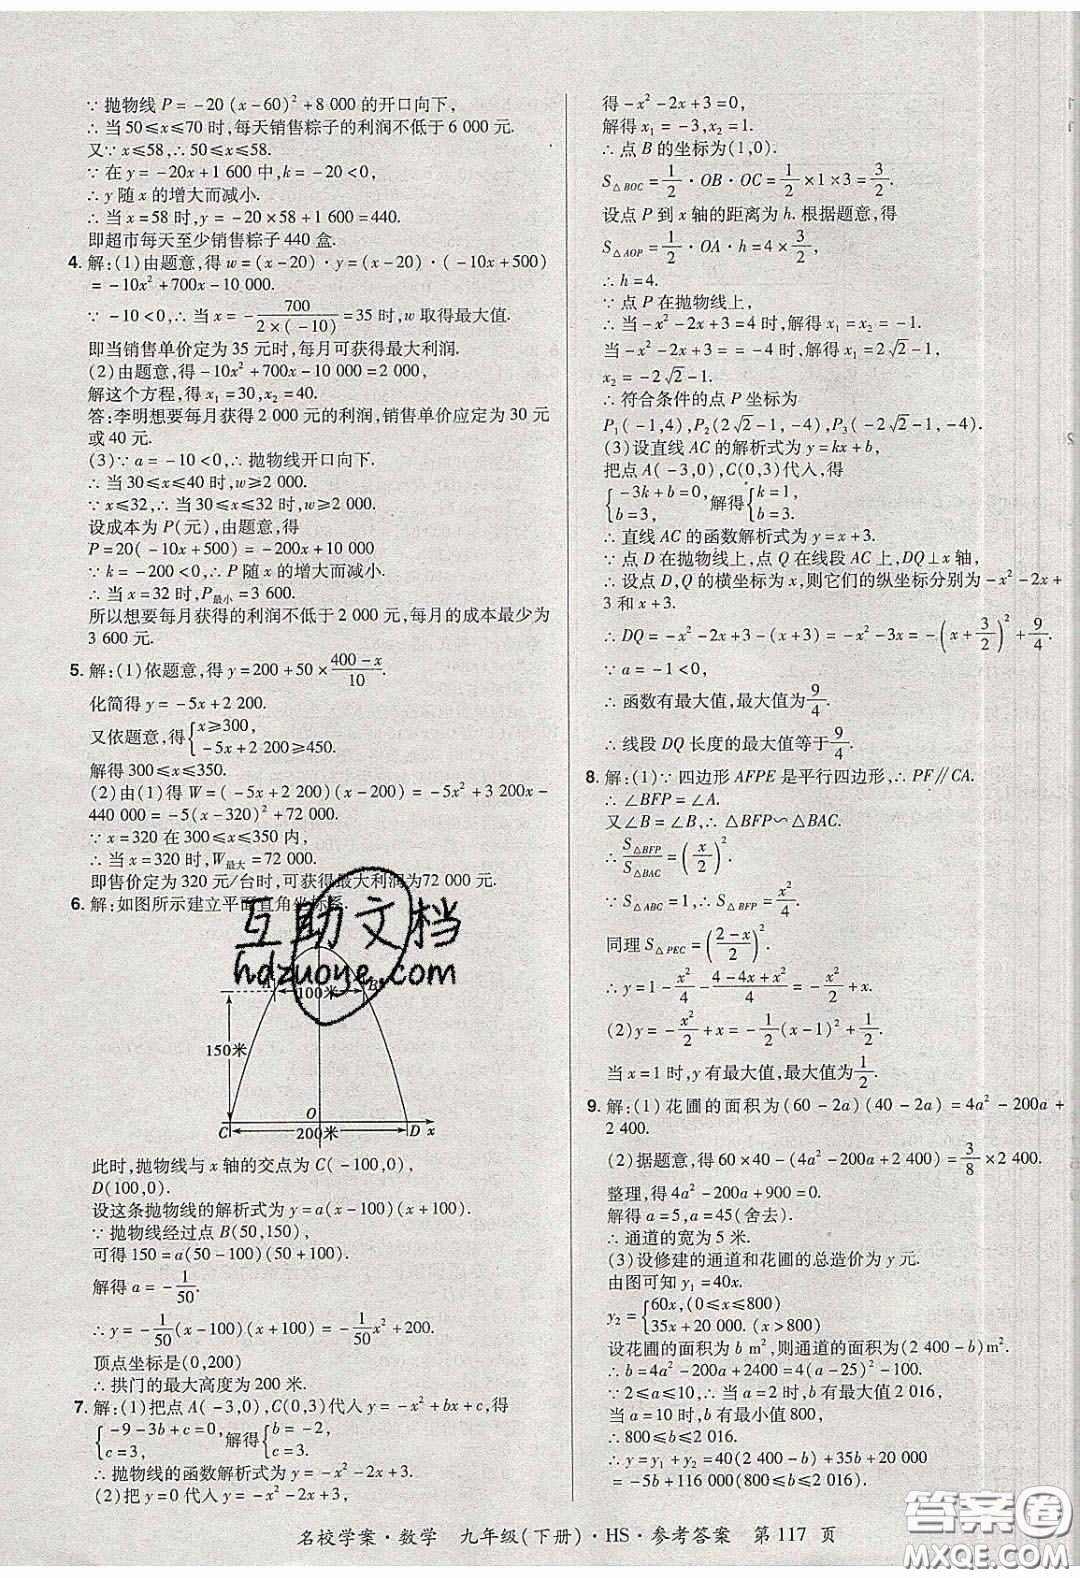 ∵ 抛物线 P = -20(x-60)²+8 000 的开口向下,
∴ 当 50≤x≤70 时,每天销售粽子的利润不低于 6 000 元.
又∵ x≤58,∴ 50≤x≤58.
∵ 在 y = -20x+1 600 中,k = -20<0,
∴ y 随 x 的增大而减小.
∴ 当 x = 58 时,y = -20×58+1 600 = 440.
即超市每天至少销售粽子 440 盒.
4. 解:(1)由题意,得 w = (x-20)·y = (x-20)·(-10x+500)
= -10x²+700x-10 000.
∵ -10<0,∴ 当 x = -700/(2×(-10)) = 35 时,w 取得最大值.
即当销售单价定为 35 元时,每月可获得最大利润.
(2)由题意,得 -10x²+700x-10 000 = 2 000,
解这个方程,得 x₁ = 30,x₂ = 40.
答:李明想要每月获得 2 000 元的利润,销售单价应定为 30 元
或 40 元.
(3)∵ a = -10<0,∴ 抛物线开口向下.
∴ 当 30≤x≤40 时,w≥2 000.
∵ x≤32,∴ 当 30≤x≤32 时,w≥2 000.
设成本为 P(元),由题意,得
P = 20(-10x+500) = -200x+10 000
∵ k = -200<0,∴ P 随 x 的增大而减小.
∴ 当 x = 32 时,P最小 = 3 600.
所以想要每月获得的利润不低于 2 000 元,每月的成本最少为
3 600 元.
5. 解:(1)依题意,得 y = 200+50×(400-x)/10.
化简得 y = -5x+2 200.
又依题意,得{x≥300,
-5x+2 200≥450.
解得 300≤x≤350.
(2)由(1)得 W = (-5x+2 200)(x-200) = -5x²+3 200x-
440 000 = -5(x-320)²+72 000.
∵ x = 320 在 300≤x≤350 内,
∴ 当 x = 320 时,W最大 = 72 000.
即售价定为 320 元/台时,可获得最大利润为72 000 元.
6. 解:如图所示建立平面直角坐标系.
A 100米 B
150米
C O D x
200米
此时,抛物线与 x 轴的交点为 C(-100,0),
D(100,0).
设这条抛物线的解析式为 y = a(x-100)(x+100).
∵ 抛物线经过点 B(50,150),
可得 150 = a(50-100)(50+100).
解得 a = -1/50.
∴ y = -1/50(x-100)(x+100) = -1/50x²+200.
顶点坐标是(0,200)
∴ 拱门的最大高度为 200 米.
7. 解:(1)把点 A(-3,0),C(0,3)代入 y = -x²+bx+c,得
{-9-3b+c = 0, 解得{b = -2,
c = 3, c = 3.
∴ 抛物线的函数解析式为 y = -x²-2x+3.
(2)把 y = 0 代入 y = -x²-2x+3,
得 -x²-2x+3 = 0,
解得 x₁ = -3,x₂ = 1.
∴ 点 B 的坐标为(1,0).
S△BOC = 1/2·OB·OC = 1/2×1×3 = 3/2.
设点 P 到 x 轴的距离为 h. 根据题意,得
S△AOP = 1/2·OA·h = 4×3/2,
∴ h = 4.
∵ 点 P 在抛物线上,
∴ 当 -x²-2x+3 = 4 时,解得 x₁ = x₂ = -1.
当 -x²-2x+3 = -4 时,解得 x₁ = 2√2-1,
x₂ = -2√2-1,
∴ 符合条件的点 P 坐标为
P₁(-1,4),P₂(2√2-1,-4),P₃(-2√2-1,-4)
(3)设直线 AC 的解析式为 y = kx+b,
把点 A(-3,0),C(0,3)代入,得
{-3k+b = 0, 解得{k = 1,
b = 3, b = 3.
∴ 直线 AC 的函数解析式为 y = x+3.
∵ 点 D 在抛物线上,点 Q 在线段 AC 上,DQ⊥x 轴,
∴ 设点 D,Q 的横坐标为 x,则它们的纵坐标分别为 -x²-2x+
3 和 x+3.
∴ DQ = -x²-2x+3-(x+3) = -x²-3x = -(x+3/2)²+9/4.
∵ a = -1<0,
∴ 函数有最大值,最大值为 9/4.
∴ 线段 DQ 长度的最大值等于 9/4.
8. 解:(1)∵ 四边形 AFPE 是平行四边形,∴ PF∥CA.
∴ ∠BFP = ∠A.
又∠B = ∠B,∴ △BFP∽△BAC.
∴ S△BFP/S△BAC = (x/2)²
∵ S△ABC = 1,∴ S△BFP = x²/4.
同理 S△PEC = ((2-x)/2)².
∴ y = 1-x²/4-(4-4x+x²)/4 = -x²/2+x.
(2)y = -x²/2+x = -1/2(x-1)²+1/2.
当 x = 1 时,y 有最大值,最大值为 1/2.
9. 解:(1)花圃的面积为(60-2a)(40-2a) = 4a²-200a+
2 400.
(2)据题意,得 60×40-(4a²-200a+2 400) = 3/8×2 400.
整理,得 4a²-200a+900 = 0.
解得 a = 5,a = 45(舍去).
∴ 通道的宽为 5 米.
(3)设修建的通道和花圃的总造价为 y 元.
由图可知 y₁ = 40x.
y₂ = {60x,(0≤x≤800)
35x+20 000. (x>800)
设花圃的面积为 b m²,则通道的面积为(2 400-b)m².
∴ b = 4a²-200a+2400 = 4(a-25)²-100.
∵ 2≤a≤10,∴ 当 a = 2 时,b 有最大值 2 016,
当 a = 10 时,b 有最小值 800,
∴ 800≤b≤2 016.
∴ y = y₁+y₂ = 40(2 400-b)+35b+20 000
= -5b+116 000(800≤b≤2 016).
互助文档
hdzuoye.com
名校学案·数学 九年级(下册)·HS·参考答案 第 117 页
答案圈
MXQE.COM